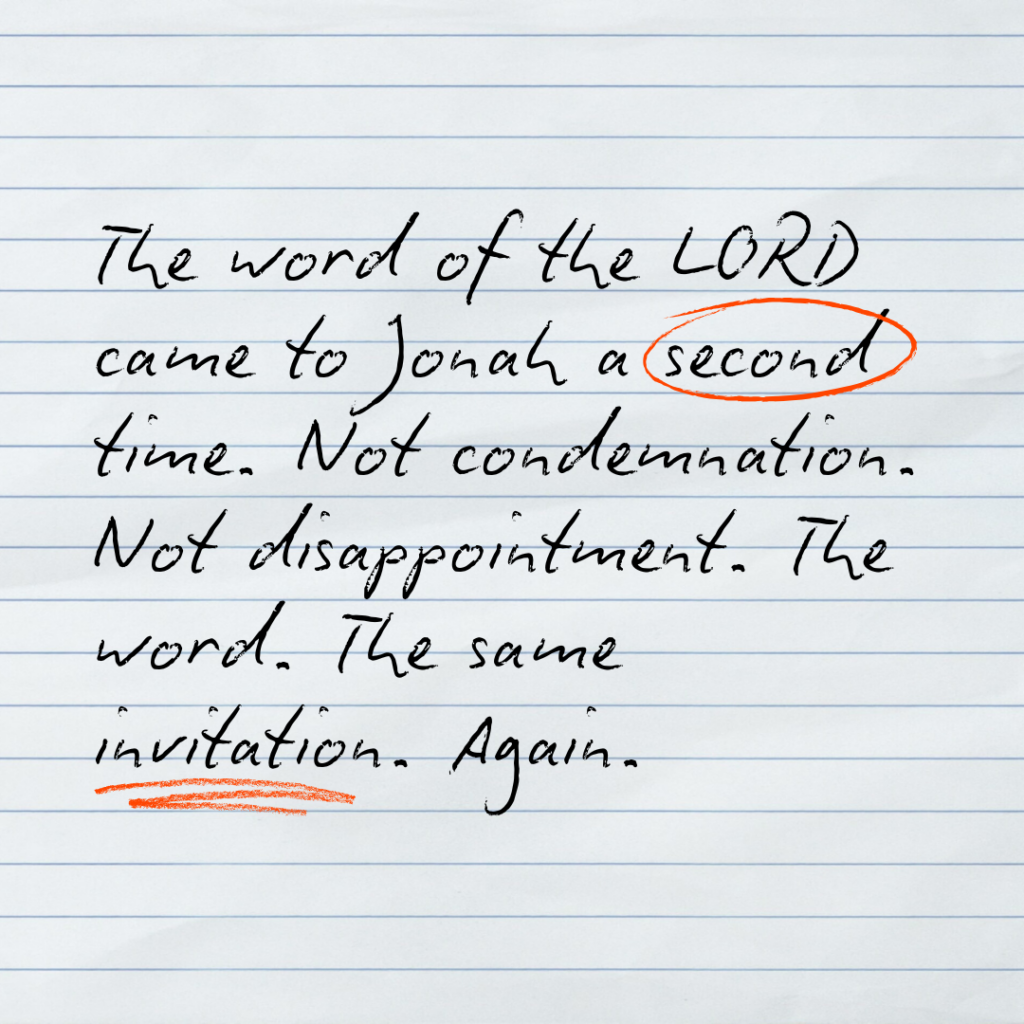 The word of the LORD
came to Jonah a second
time. Not condemnation.
Not disappointment. The
word. The same
invitation. Again.